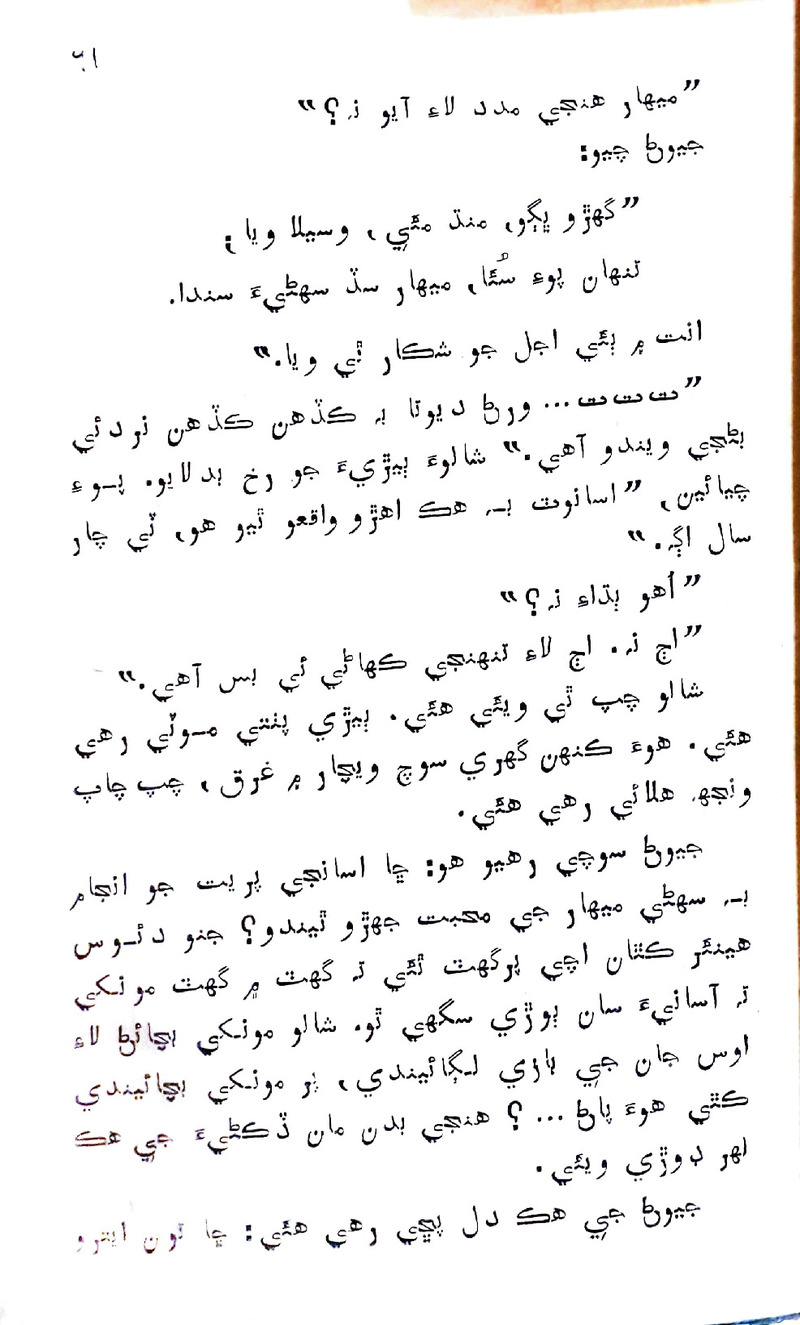 ٦١
”ميهار هنجي مدد لاءِ آيو نہ؟“
جيوڻ چيو:
”گهڙو ڀڳو، منڌ مئي، وسيلا ويا؛
تنهان پوءِ سُئا، ميهار سڏ سهڻيءَ سندا.
انت ۾ ٻئي اجل جو شڪار ٿي ويا.“
”ت ت ت... ورڻ ديوتا بہ ڪڏهن ڪڏهن نردئي
بڻجي ويندو آهي.“ شالوءَ ٻيڙيءَ جو رخ بدلايو. پوءِ
چيائين، ”اسانوٽ بہ هڪ اهڙو واقعو ٿيو هو، ٽي چار
سال اڳہ.“
”اُهو ٻڌاءِ نہ؟“
”اڄ نہ. اڄ لاءِ تنهنجي ڪهاڻي ئي بس آهي.“
شالو چپ ٿي ويئي هئي. ٻيڙي پٺتي موٽي رهي
هئي. هوءَ ڪنهن گهري سوچ ويچار ۾ غرق، چپ چاپ
ونجهہ هلائي رهي هئي.
جيوڻ سوچي رهيو هو: ڇا اسانجي پريت جو انجام
بہ سهڻي ميهار جي محبت جهڙو ٿيندو؟ جنو دئوس
هينئر ڪٿان اچي پرگهٽ ٿئي تہ گهٽ ۾ گهٽ مونکي
تہ آسانيءَ سان ٻوڙي سگهي ٿو. شالو مونکي بچائڻ لاءِ
اوس جان جي بازي لڳائيندي، پر مونکي بچائيندي
ڪٿي هوءَ پاڻ... ؟ هنجي بدن مان ڏڪڻيءَ جي هڪ
لهر ڊوڙي ويئي.
جيوڻ جي هڪ دل پڇي رهي هئي: ڇا تون ايترو